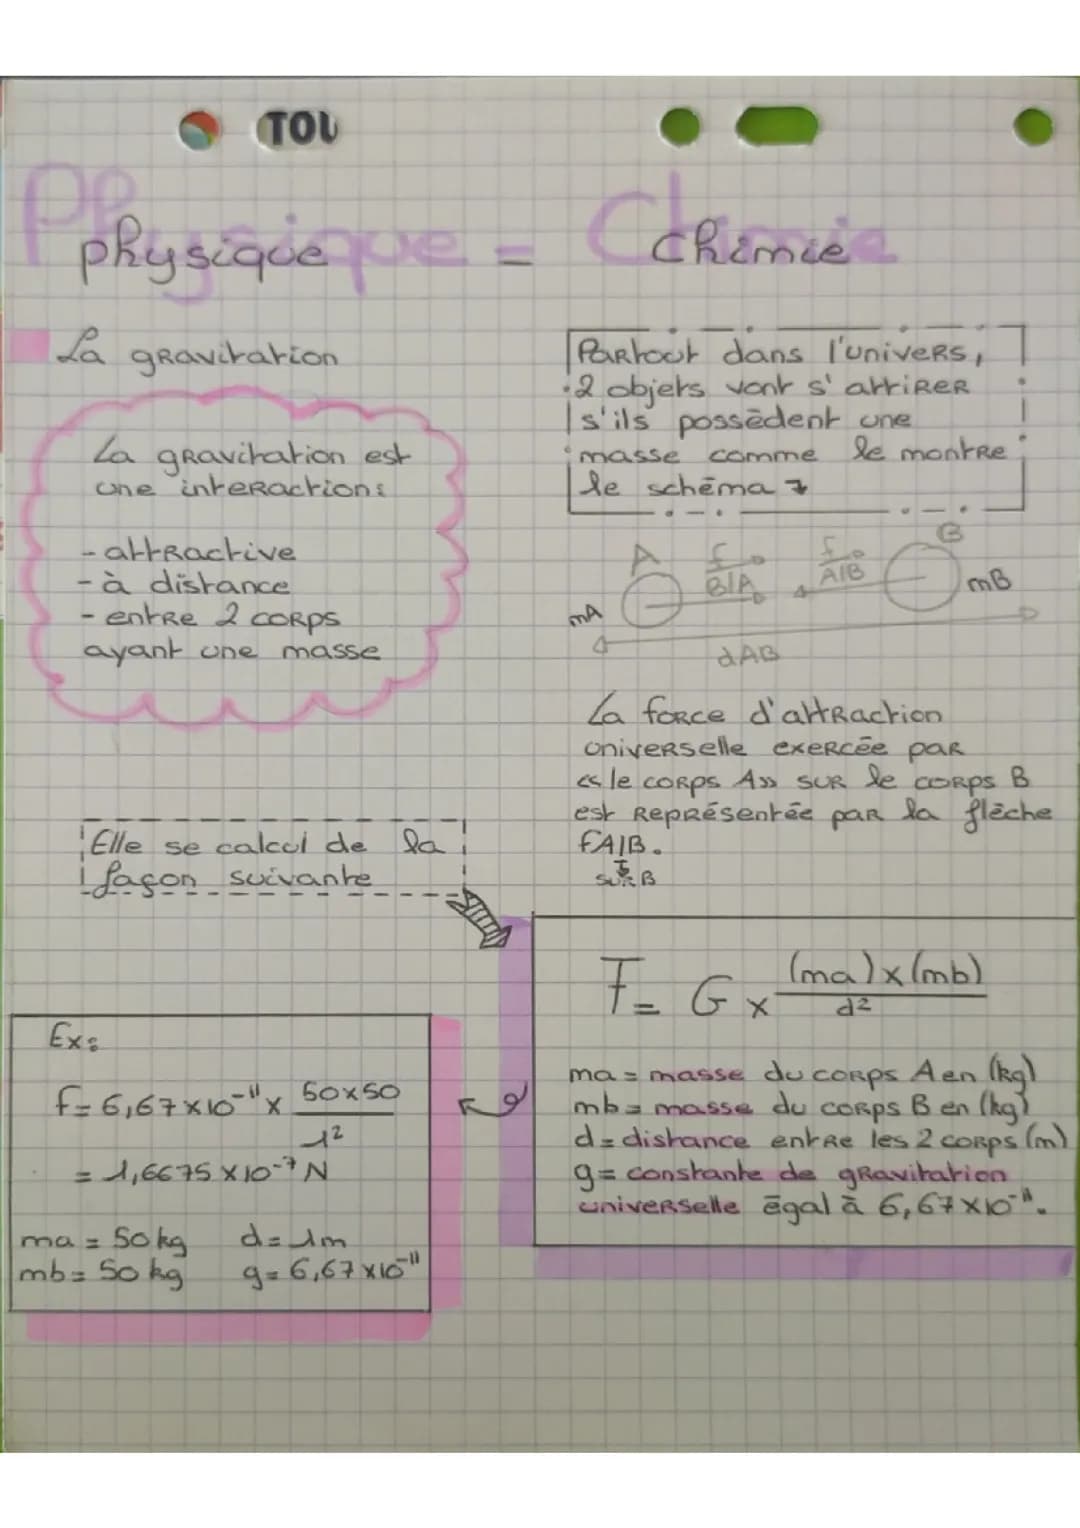 TOU
Physique = Chimie
physique chimie
La gravitation
La gravitation est
une interaction:
- attractive
- à distance
- entre 2 corps
ayant une masse
Partout dans l'univers,
2 objets vont s'attirer
s'ils possèdent une
masse comme le montre
le schéma
A f B/A f A/B B
mA mB
dAB
La force d'attraction
universelle exercée par
«le corps A» sur le corps B
est représentée par la flèche
FA/B.
SUR B
Elle se calcul de la
façon suivante
F = G x (ma) x (mb)
d²
ma = masse du corps A en (kg)
mb = masse du corps B en (kg)
d = distance entre les 2 corps (m)
g = constante de gravitation
universelle égal à 6,67 x 10⁻¹¹.
Ex:
f = 6,67 x 10⁻¹¹ x 50 x 50
1²
= 1,6675 x 10⁻⁷ N
ma = 50 kg d = 1m
mb = 50 kg g = 6,67 x 10⁻¹¹